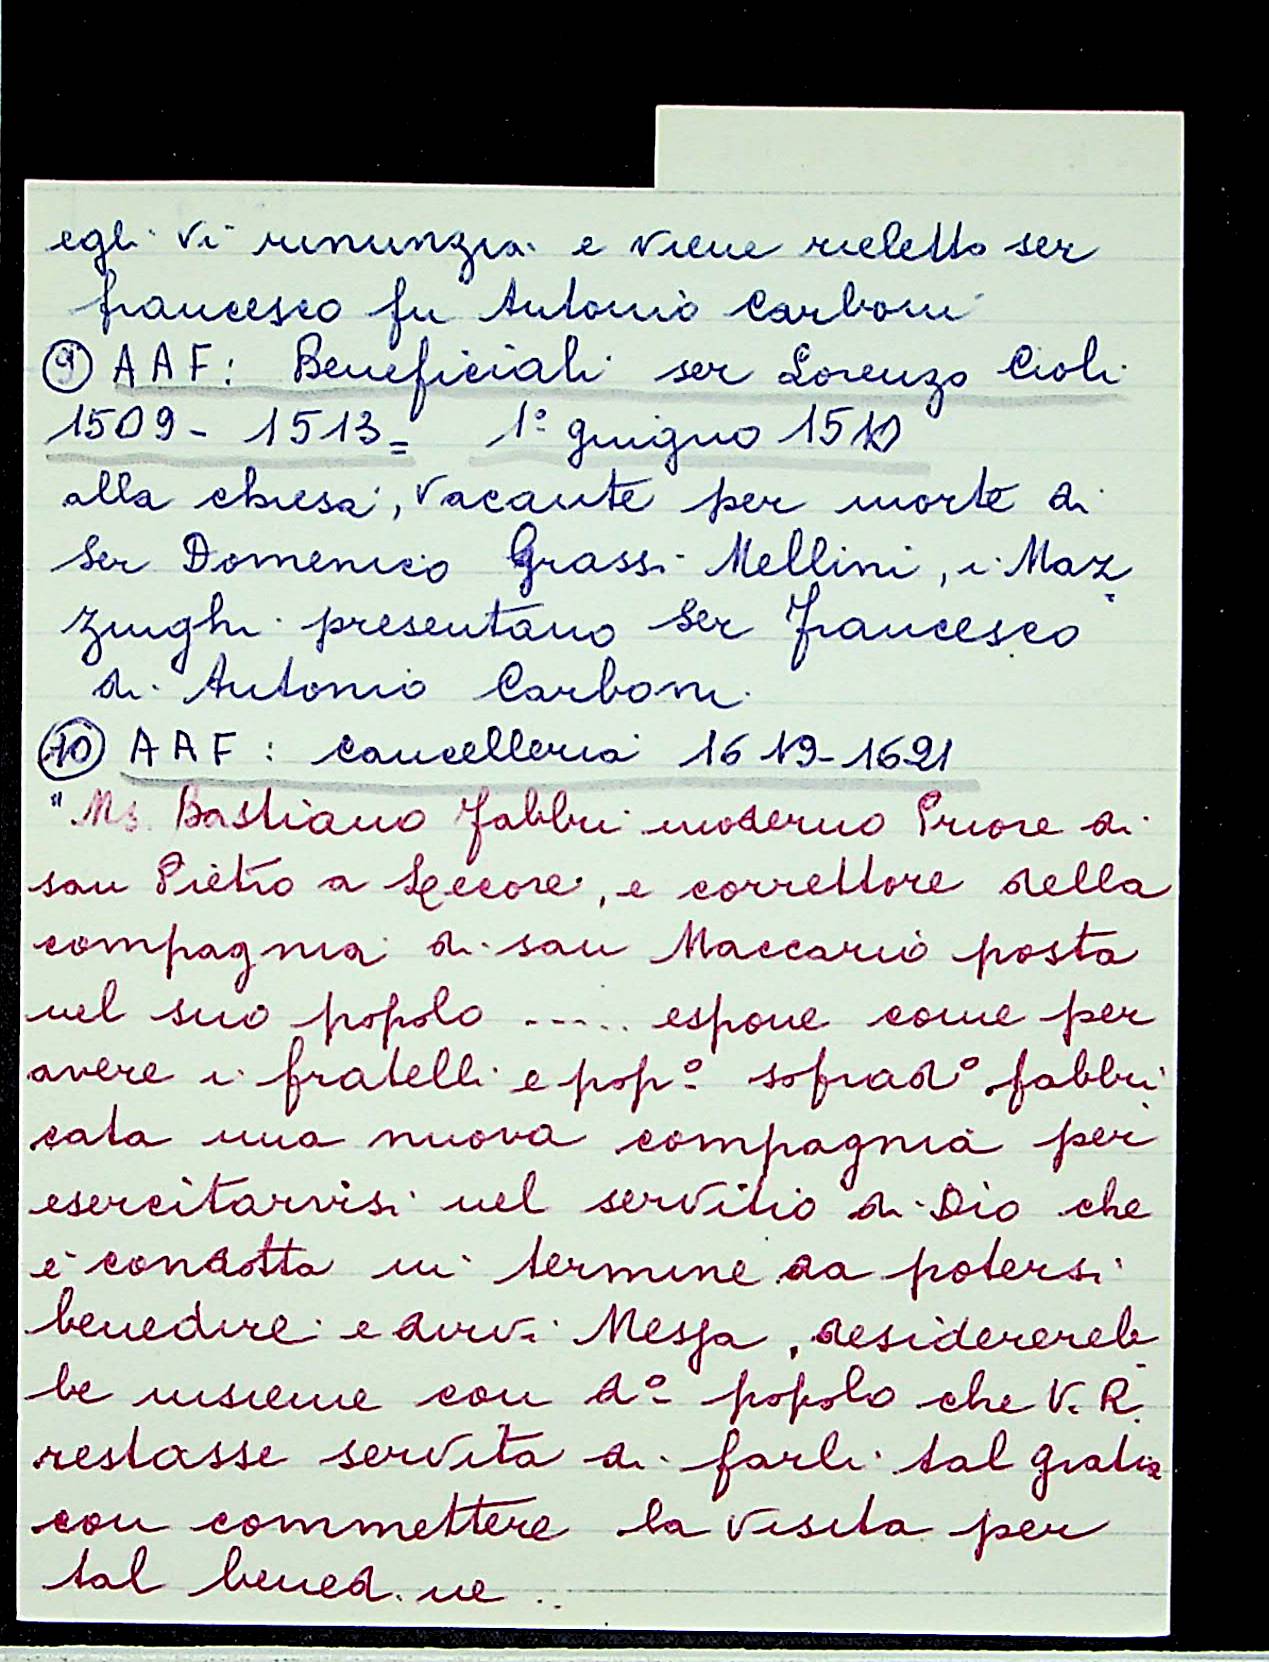 egli vi rinunzia e viene rieletto ser
francesco fu Antonio Carboni
⑨ AAF: Beneficiali ser Lorenzo Cioli
1509 - 1513 = 1° giugno 1510
alla chiesa, vacante per morte di
Ser Domenico Grassi Mellini, i Maz=
zinghi presentano Ser Francesco
di Antonio Carboni
⑩ AAF: cancelleria 1619-1621
"Ms. Bastiano Fabbri moderno Priore di
san Pietro a Leccore, e correttore della
compagnia di san Maccario posta
nel suo popolo ..... espone come per
avere i fratelli e pop° soprad° fabbri
cata una nuova compagnia per
esercitarvisi nel servitio di Dio che
è condotta in termine da potersi
benedire e dirvi Messa, desiderereb
be insieme con d° popolo che V. R.
restasse servita di farli tal gratia
con commettere la visita per
tal bened.ne ..